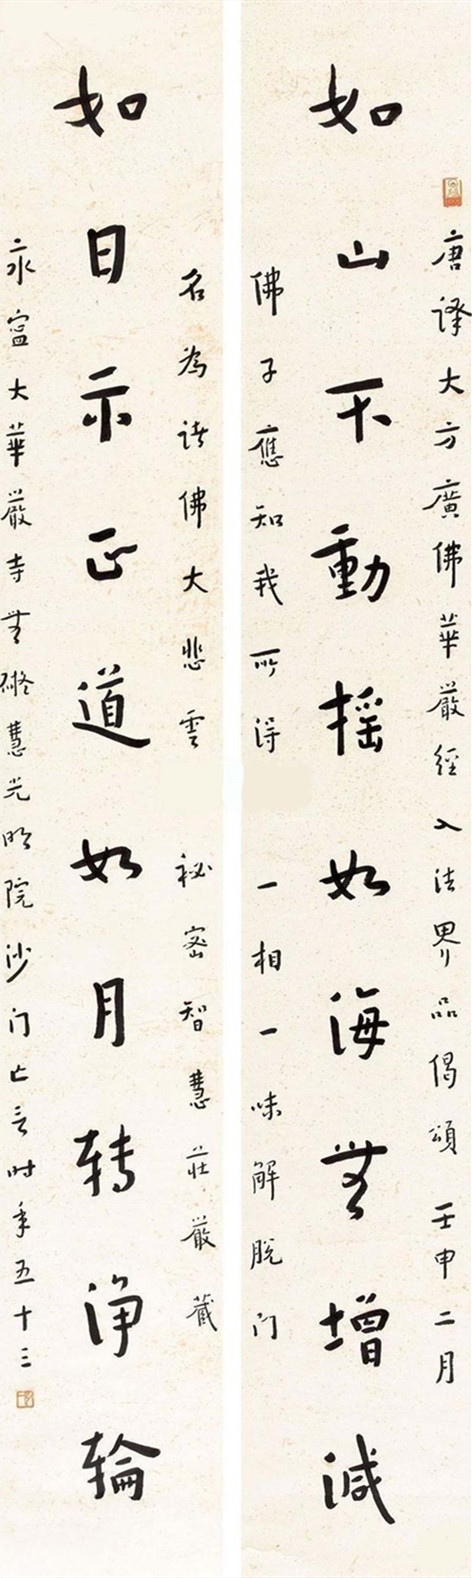 唐譯大方廣佛華嚴經入法界品偈頌 壬申二月
如山不動搖如海無增減
佛子應知我所得 一相一味解脫门
名為諸佛大悲雲 秘密智慧莊嚴藏
如日示正道如月轉淨輪
永寧大華嚴寺無礙慧光明院沙门亡言时年五十三